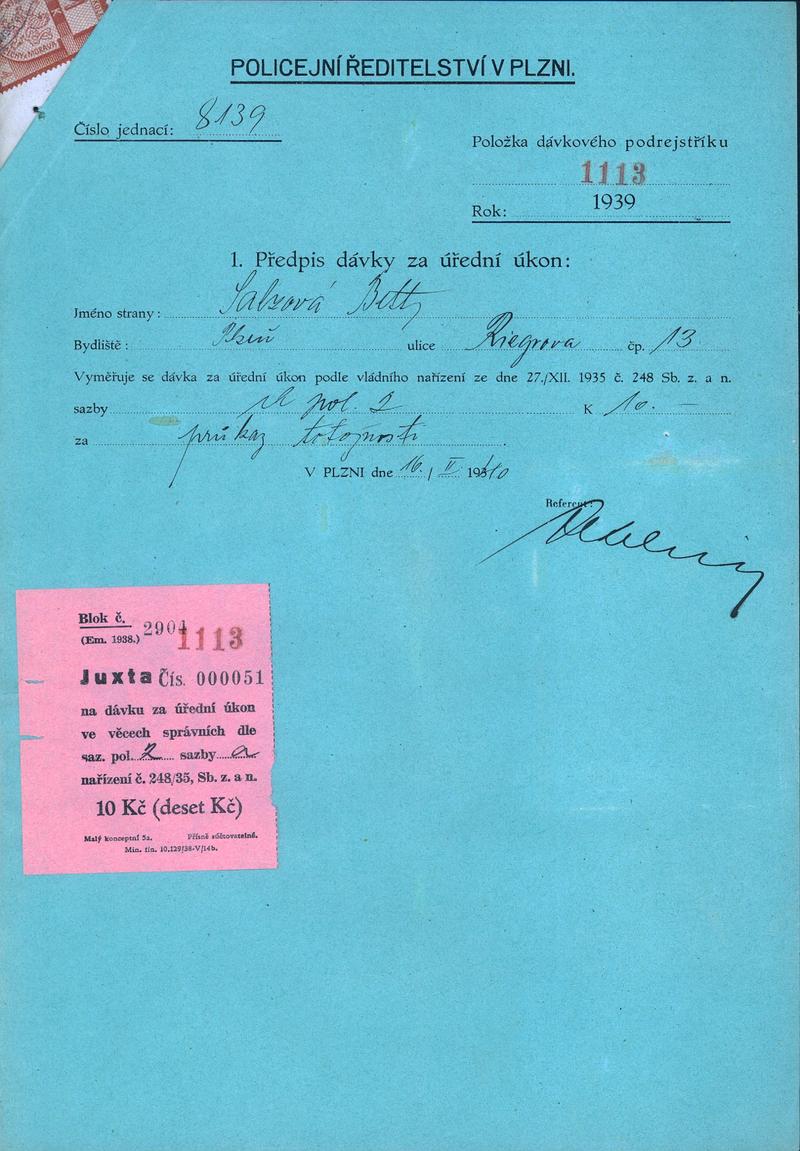 POLICEJNÍ ŘEDITELSTVÍ V PLZNI.
Číslo jednací: 8139
Položka dávkového podrejstříku
1113
Rok: 1939
1. Předpis dávky za úřední úkon:
Jméno strany: Salzová Betty
Bydliště: Plzeň ulice Riegrova čp. 13
Vyměřuje se dávka za úřední úkon podle vládního nařízení ze dne 27./XII. 1935 č. 248 Sb. z. a n.
sazby A pol. 2 K 10.-
za průkaz totožnosti
V PLZNI dne 16. / II 1940
Referent:
Blok č. 2904
(Em. 1938.) 1113
Juxta Čís. 000051
na dávku za úřední úkon
ve věcech správních dle
saz. pol. 2 sazby a
nařízení č. 248/35, Sb. z. a n.
10 Kč (deset Kč)
Malý konceptní 5a. Přísně súčtovatelné.
Min. fin. 10.129/38-V/14b.